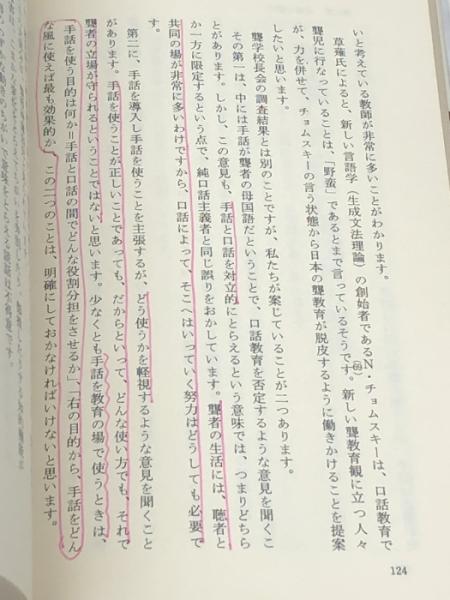 いと考えている教師が非常に多いことがわかります。
草薙氏によると、新しい言語学（生成文法理論）の創始者であるN・チョムスキーは、口話教育で
聾児に行なっていることは、「野蛮」であるとまで言っているそうです。新しい聾教育観に立つ人々
が、力を併せて、チョムスキーの言う状態から日本の聾教育が脱皮するように働きかけることを提案
したいと思います。
聾学校長会の調査結果とは別のことですが、私たちが案じていることが二つあります。
その第一は、中には手話が聾者の母国語だということで、口話教育を否定するような意見を聞くこ
とがあります。しかし、この意見も、手話と口話を対立的にとらえるという意味では、つまりどちら
か一方に限定するという点で、純口話主義者と同じ誤りをおかしています。聾者の生活には、聴者と
共同の場が非常に多いわけですから、口話によって、そこへはいっていく努力はどうしても必要で
す。
第二に、手話を導入し手話を使うことを主張するが、どう使うかを軽視するような意見を聞くこと
があります。手話を使うことが正しいことであっても、だからといって、どんな使い方でも、それで
聾者の立場が守られるということではないと思います。少なくとも手話を教育の場で使うときは、
「手話を使う目的は何か＝手話と口話の間でどんな役割分担をさせるか」、「右の目的から、手話をどん
な風に使えば最も効果的か」この二つのことは、明確にしておかなければいけないと思います。
124